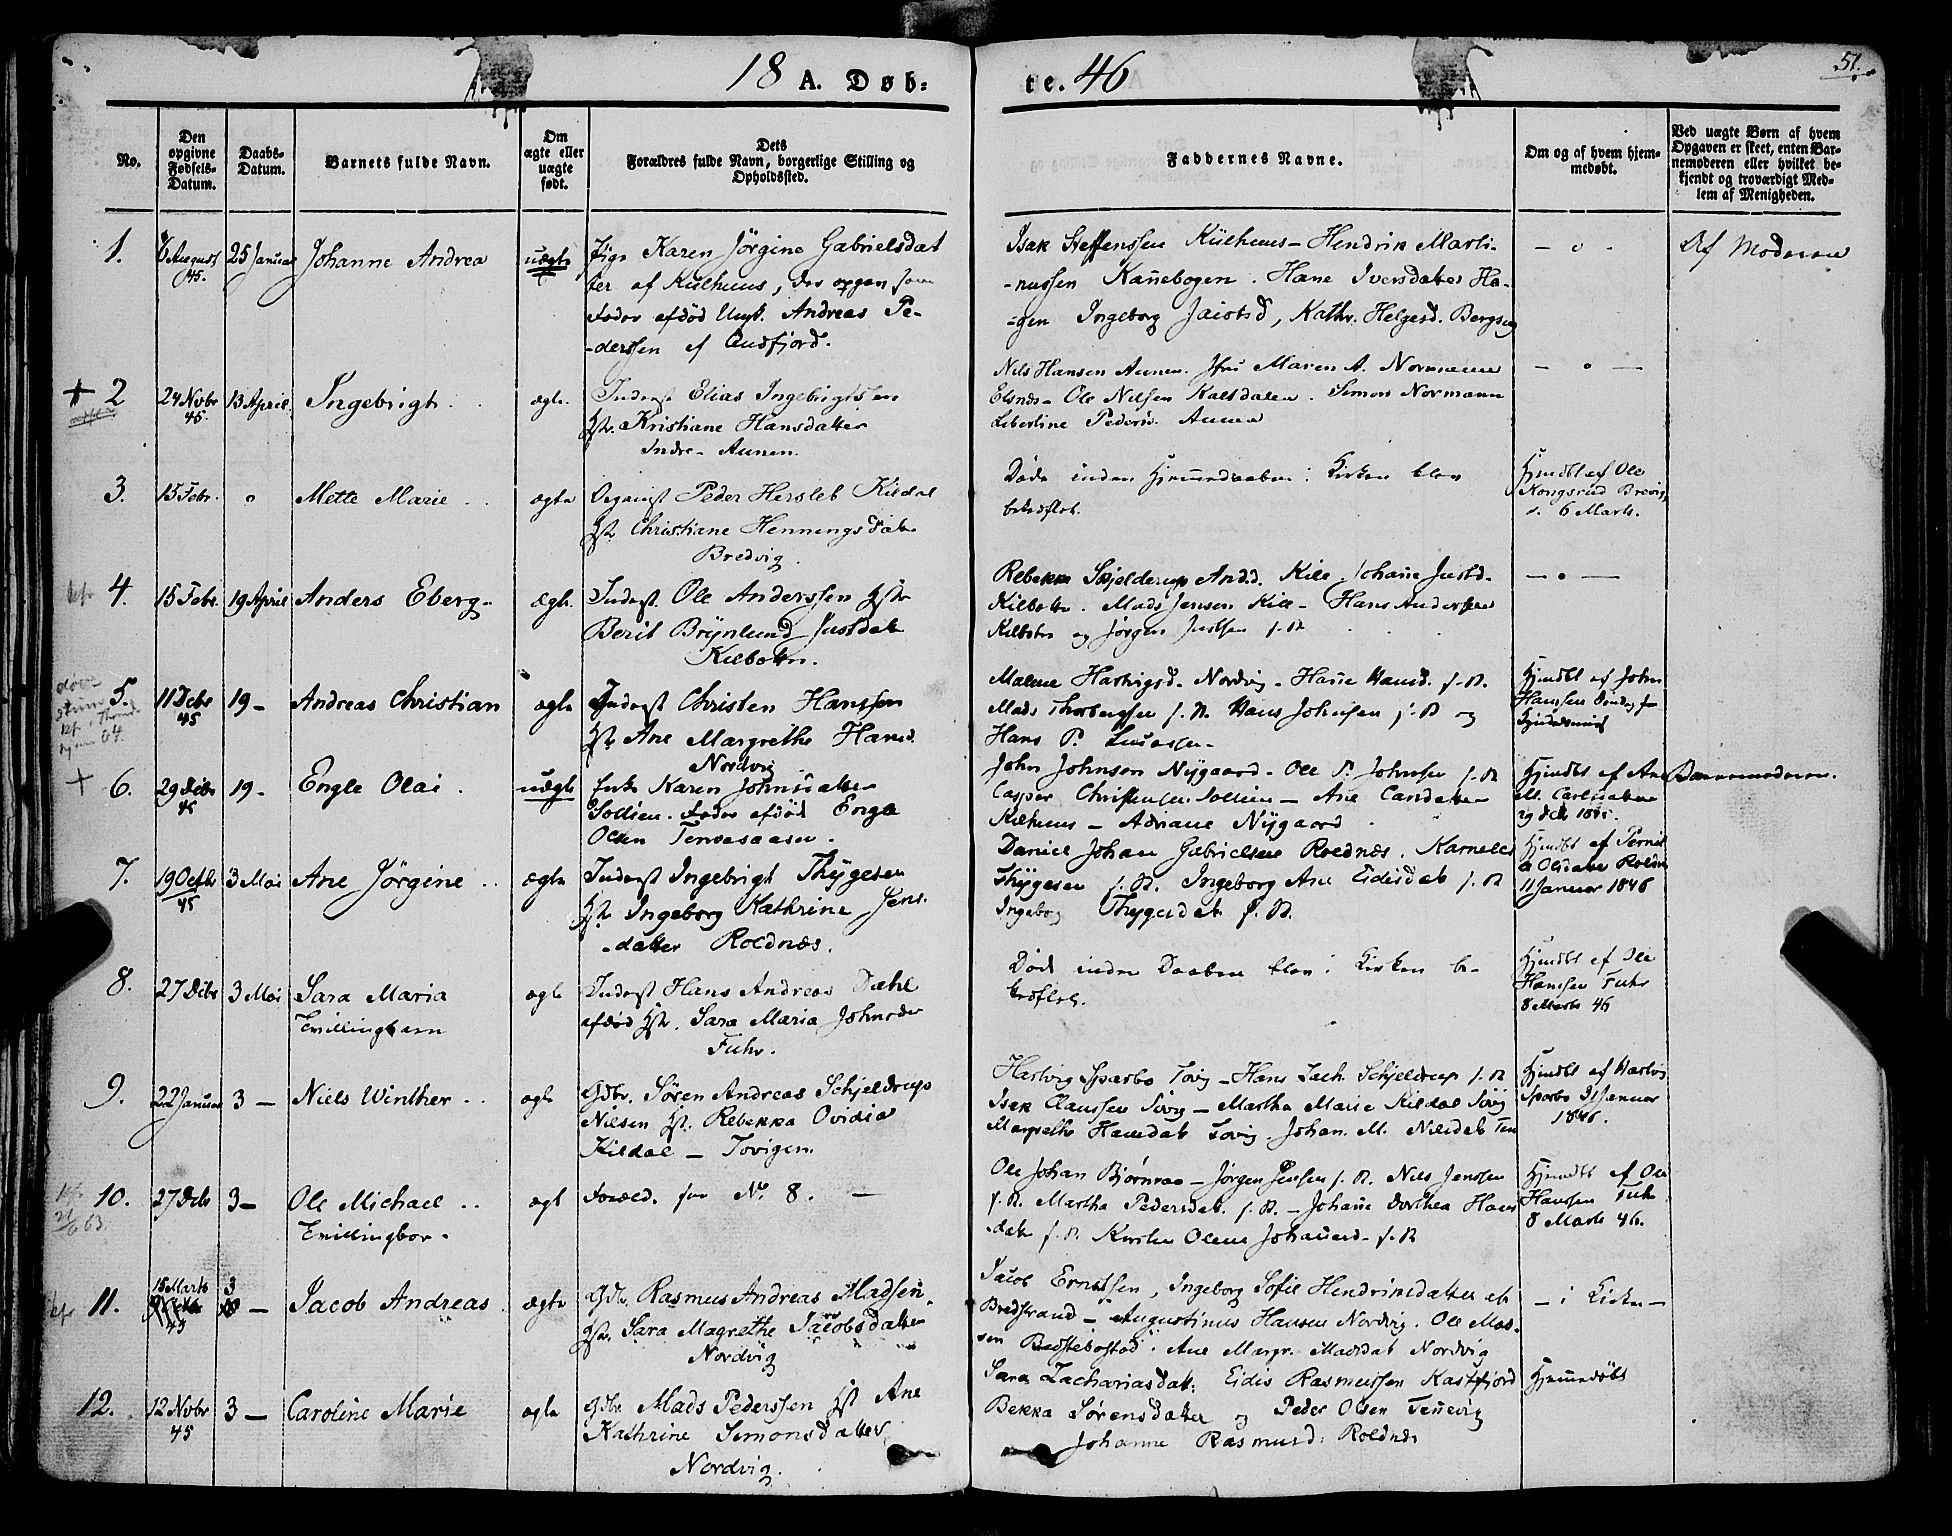 51.
18 A. Døb-
te. 46
No.
Den opgivne Fødsels-Datum.
Daabs-Datum.
Barnets fulde Navn.
Om ægte eller uægte født.
Dets Forældres fulde Navn, borgerlige Stilling og Opholdssted.
Faddernes Navne.
Om og af hvem hjem-medøbt.
Ved uægte Børn af hvem Opgaven er skeet, enten Bar-nemoderen eller hvilket be-kjendt og troværdigt Med-lem af Menigheden.
1.
August 45.
25 Januar
Johanne Andrea
uægte
Pige Karen Jörgine Gabrielsdat
ter af Kulhuus,
Fader afdød Ungk. Andreas Pe-
-derssen af Qudfjord.
Isak Steffenssen Külhuus - Hendrik Marti-
-nussen Kanebogen. Hane Iversdatter Ha-
-gen Ingeborg Jacobsd, Kathr. Helgesd. Bergseg
- o -
Af Moderen
+ 2
24 Novbr 45
13 April
Ingebrigt
ægte.
Inderst Elias Ingebrigtsen
Hst. Kristiane Hansdatter
Indre - Aunen.
Nils Hansen Aunen. Jfru Maren A. Normann
Elsnes - Ole Nilsen Kalsdalen. Simon Normann
Libertine Pedersd. Aunen
- o -
3.
15 Febr.
o
Mette Marie
ægte
Organist Peder Hersleb Kildal
Hst Christiane Henningsdatter
Bredvig
Døde inden Hjemmedaaben i Kirken blev
bekræftet.
Hjmdbt af Ole
Kongsrud Brevig
d. 6 Marts.
4.
15 Febr.
19 April
Anders Eberg-
ægte.
Inderst. Ole Anderssen Hstr
Berit Brynlund Justdatr
Kilbotn.
Rebekka Skjelderup And.d. Kile. Johane Justd.
Kilbotn. Mads Jensen Kile - Hans Anderssen
Kilbotn og Jørgen Justsen f. St
- o -
5.
11 Decbr 45
19 -
Andreas Christian
ægte
Inderst Christen Hanssen
Hst Ane Margrethe Hansd.
Nordvig
Malene Hartvigsd. Nordvig - Hane Hansd. f. St.
Mads Thorbergsen f. St. Hans Johnsen f. St og
Hans P.
Hjmdbt af John
Hansen
6.
29 Decbr 45
19 -
Engle Olai
uægte
Enke Karen Johnsdatter
Sollien. Fader afdød Engle
Olsen Tennevaasen.
John Johnsen Nygaard - Ole P. Johnsen f. St
Casper Christensen Sollien - Ane Carlsdatter
Kulhuus - Adriane Nygaard
Hjmdbt af Ane
M. Carlsdatter
29 Dcb 1845.
Barnemoderen.
7.
19 Octbr 45
3 Mai
Ane Jörgine
ægte
Inderst Ingebrigt Thygesen
Hst. Ingeborg Kathrine Jens-
-datter Roldnæs.
Daniel Johan Gabrielsen Roldnæs. Karnelis
Thygesen f. St. Ingeborg Ane Eidisdatr f. St
Ingeborg Thygesdatr f. St.
Hjmdbt af Pernil
a Olsdatter Roldn
11 Januar 1846
8.
27 Decbr
3 Mai
Sara Maria
Tvillingbarn
ægte
Inderst Hans Andreas Dahl
afdød Hst. Sara Maria Johnsdr
Fuhr.
Død inden Daaben blev i Kirken be-
kræftet.
Hjmdbt af Ole
Hansen Fuhr
8 Marts 46
9.
22 Januar
3 -
Niels Winther
ægte
Gdbr. Sören Andreas Schjeldrup
Nilsen Hst. Rebekka Ovidia
Kildal - Tovigen.
Hartvig Sparbo Tovig - Hans Zach. Schjeldrup f. St
Isak Claussen Tovig - Martha Marie Kildal Tövig
Margrethe Hansdatr Tovig. Johan. M. Nilsdatr
Hjmdbt af Hartvig
Sparbo 31 Januar
1846.
10.
27 Decbr
3 -
Ole Michael
Tvillingbror.
ægt
Foræld. see No. 8. -
Ole Johan Bjørnraa - Jørgen Jensen f. St. Nils Jenssen
f. St. Martha Pedersdat. f. St. - Johane Dorthea Hans
datr f. St. Kirsten Olene Johannesd. f. St
Hjmdbt af Ole
Hansen Fuhr
8 Marts 46.
11.
15 Marts
3
Jacob Andreas
ægte
Gdbr. Rasmus Andreas Madsen
Hst. Sara Magrethe Jacobsdatter
Nordvig
Jacob Ernstsen, Ingeborg Sofie Hendriksdatter af
Bredstrand - Augustinus Hansen Nordvig. Ole Mos-
sen Brestebostad. Ane Margr. Madsdat Nordvig
- i Kirken -
12.
12 Novbr 45
3 -
Caroline Marie
ægte
Gdbr Mads Pederssen Hst Ane
Kathrine Simonsdatter
Nordvig.
Sara Zachariasdatr. Eidis Rasmussen Kastfjord
Bekka Sørensdatter og Peder Olsen Tennevig
Johanne Rasmusd. Roldnæs
Hjemmedøbt